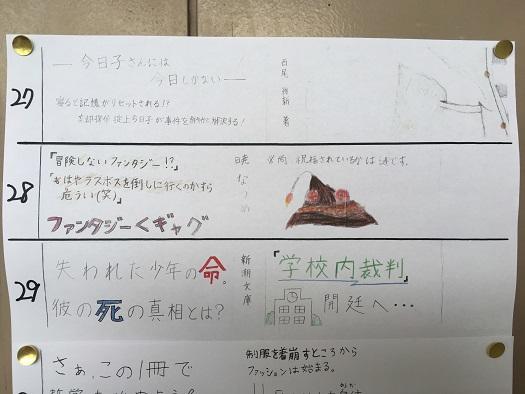 27
―今日子さんには
今日しかない―
寝ると記憶がリセットされる!?
忘却探偵 掟上今日子が事件を
西尾 維新 著
28
「冒険しないファンタジー!?」
「もはやラスボスを倒しに行くのかすら
危うい(笑)」
ファンタジー<ギャグ
暁 なつめ
祝福されているかは謎です。
29
失われた少年の命。
彼の死の真相とは?
新潮文庫
『学校内裁判』
開廷へ…
さぁ、この1冊で
制服を着崩すところから
ファッションは始まる。